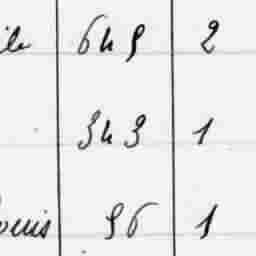 ile 649 2
343 1
ouis 96 1